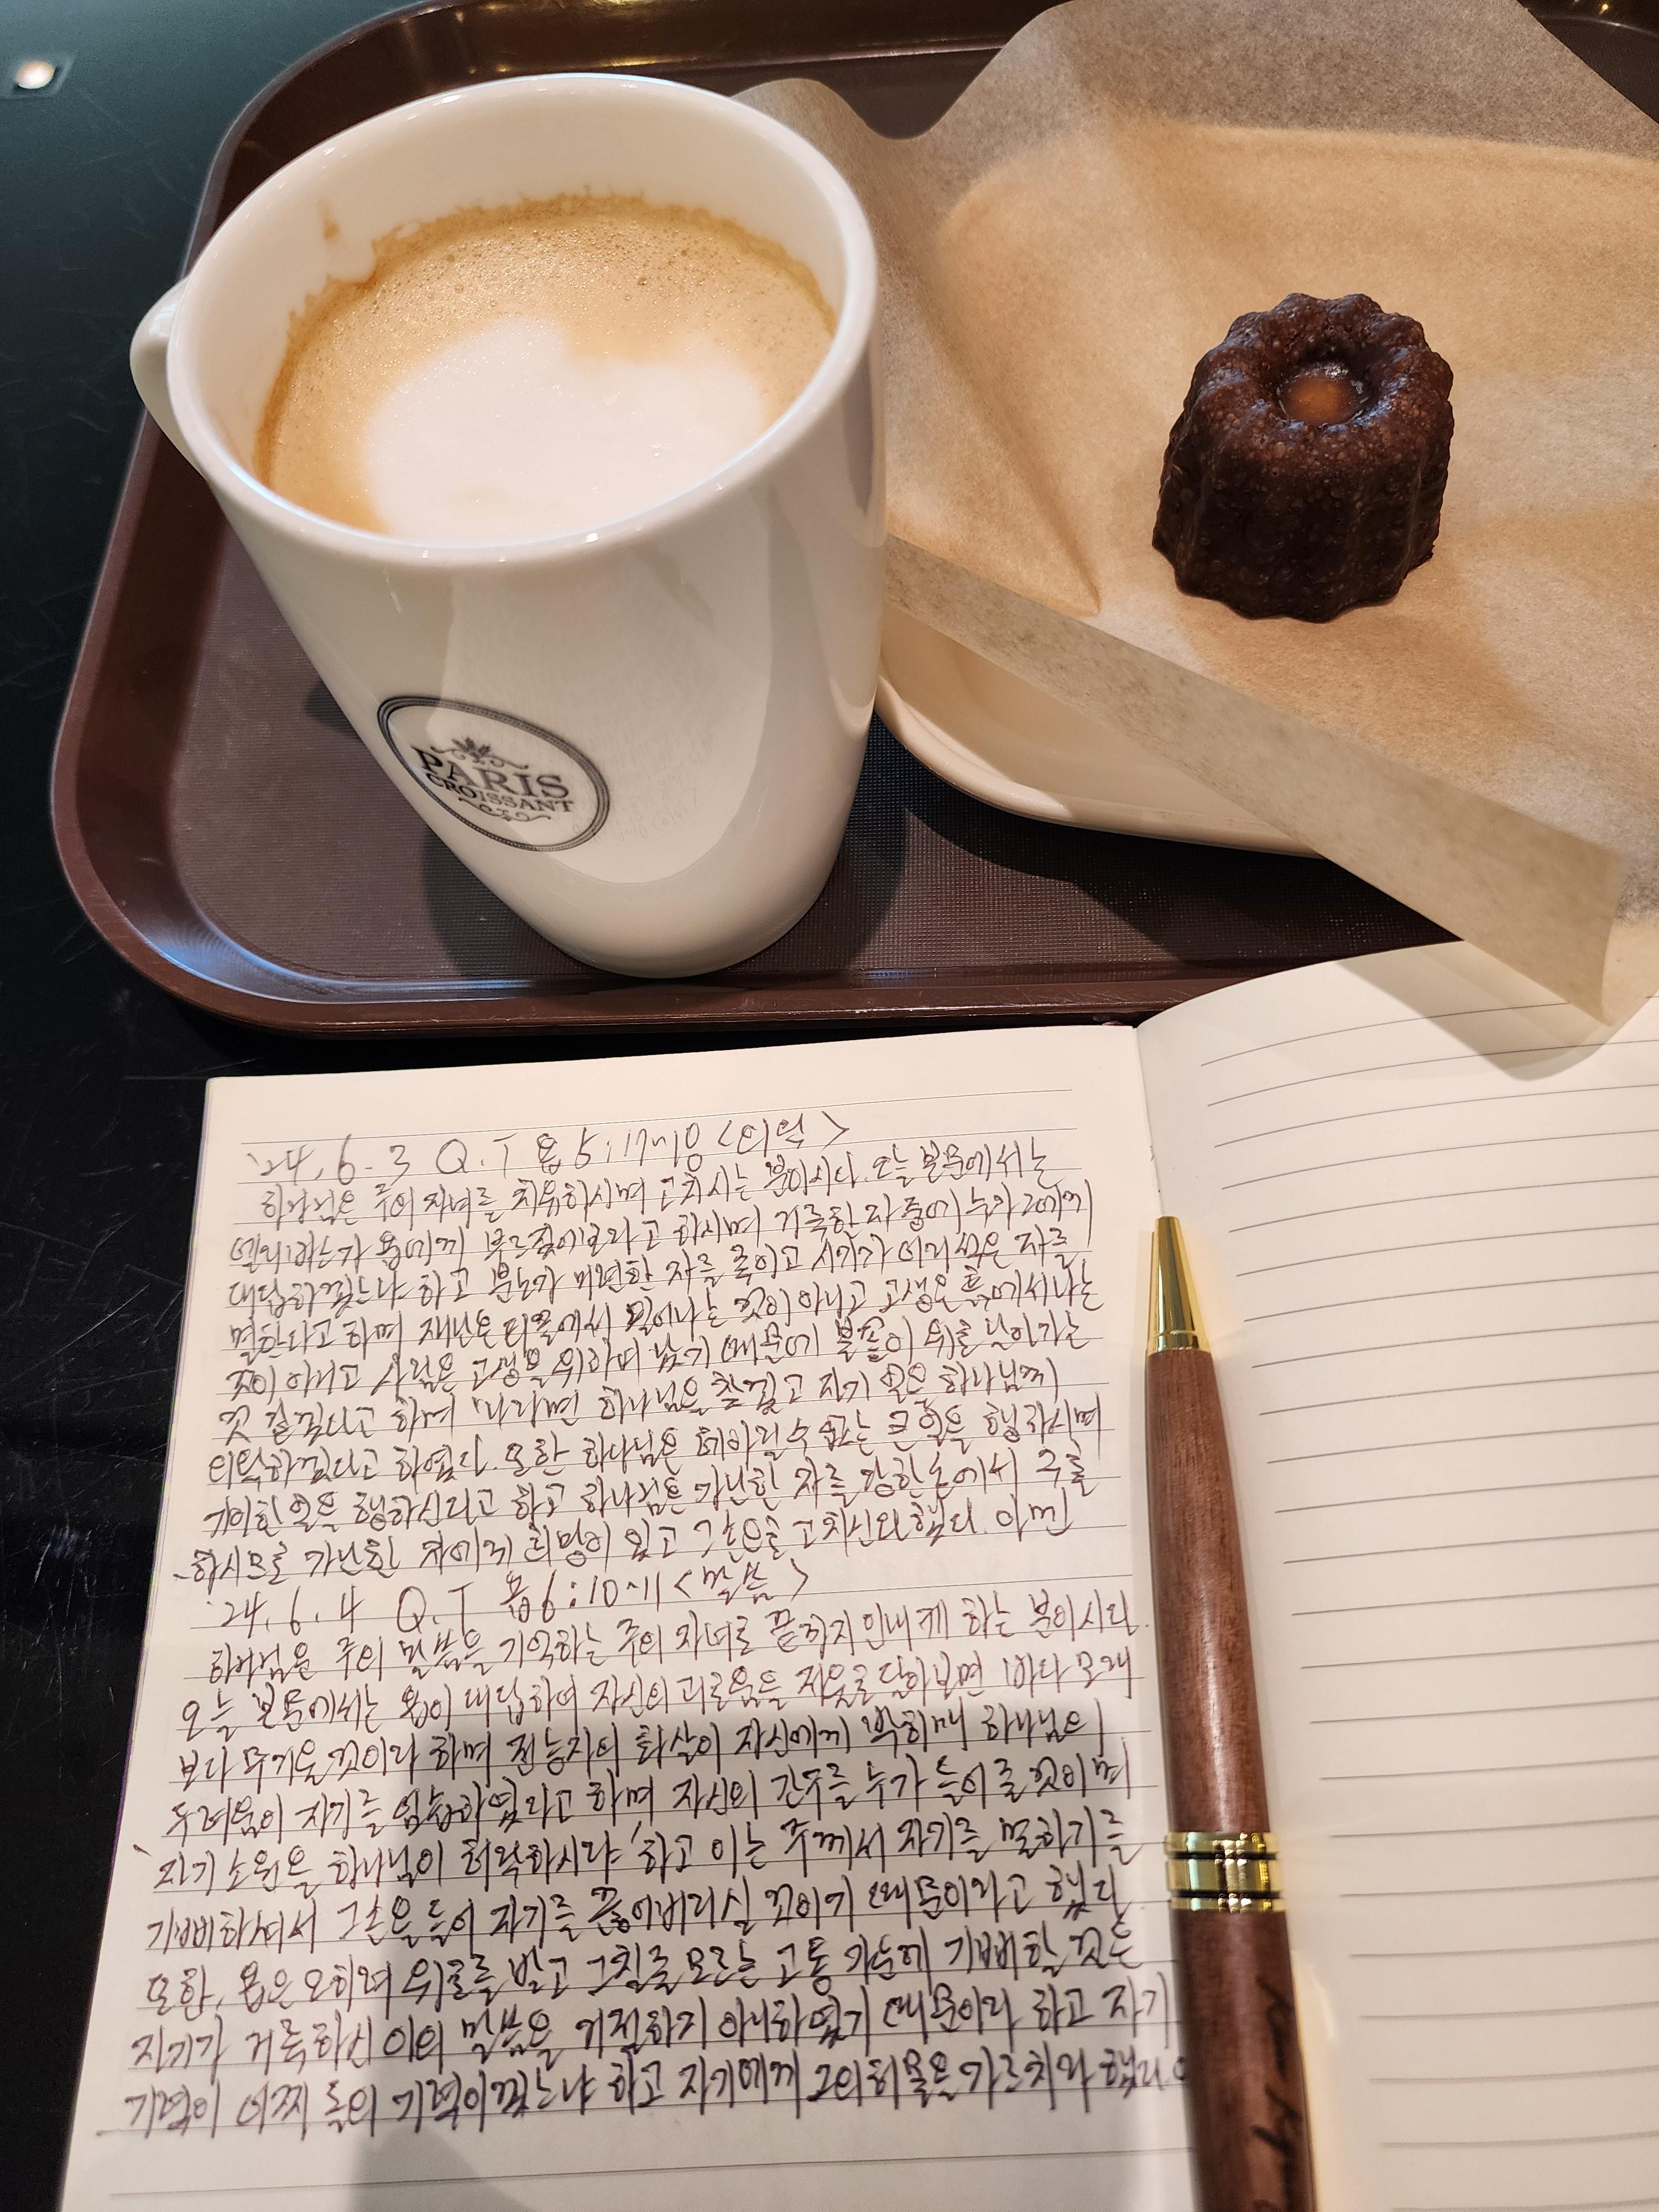 PARIS
CROISSANT
'24. 6. 3 Q.T 욥 5:17~18 <의탁>
하나님은 주의 자녀를 치유하시며 고치시는 분이시다. 오늘 본문에서는
엘리바스가 욥에게 부르짖어보라고 하시며 거룩한 자 중에 누가 그에게
대답하겠느냐 하고 분노가 미련한 자를 죽이고 시기가 어리석은 자를
멸한다고 하며 재난은 티끌에서 일어나는 것이 아니고 고생은 흙에서 나는
것이 아니고 사람은 고생을 위하여 났기 때문에 불꽃이 위로 날아가는
것 같겠다고 하며 나라면 하나님을 찾겠고 자기 일은 하나님께
의탁하겠다고 하였다. 또한 하나님은 헤아릴 수 없는 큰 일을 행하시며
기이한 일을 행하신다고 하고 하나님은 가난한 자를 강한 손에서 구출
하시므로 가난한 자에게 희망이 있고 그 손으로 고치신다 했다. 아멘
'24. 6. 4 Q.T 욥 6:10~11 <말씀>
하나님은 주의 말씀을 기억하는 주의 자녀로 끝까지 인내케 하는 분이시다.
오늘 본문에서는 욥이 대답하여 자신의 괴로움을 저울로 달아보면 바다 모래
보다 무거울 것이라 하며 전능자의 화살이 자신에게 박히매 하나님의
두려움이 자기를 엄습하였다고 하며 자신의 간구를 누가 들어 줄 것이며
자기 소원을 하나님이 허락하시랴 하고 이는 주께서 자기를 멸하기를
기뻐하셔서 그 손을 들어 자기를 끊어버리실 것이기 때문이라고 했다
또한, 욥은 오히려 위로를 받고 그칠 줄 모르는 고통 가운데 기뻐할 것은
자기가 거룩하신 이의 말씀을 거절하지 아니하였기 때문이라 하고 자기
기력이 어찌 돌의 기력이겠느냐 하고 자기에게 그의 허물을 가르치라 했다